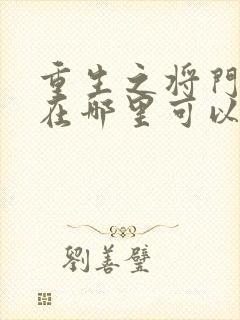 重生之将門
在哪里可以
劉善璧